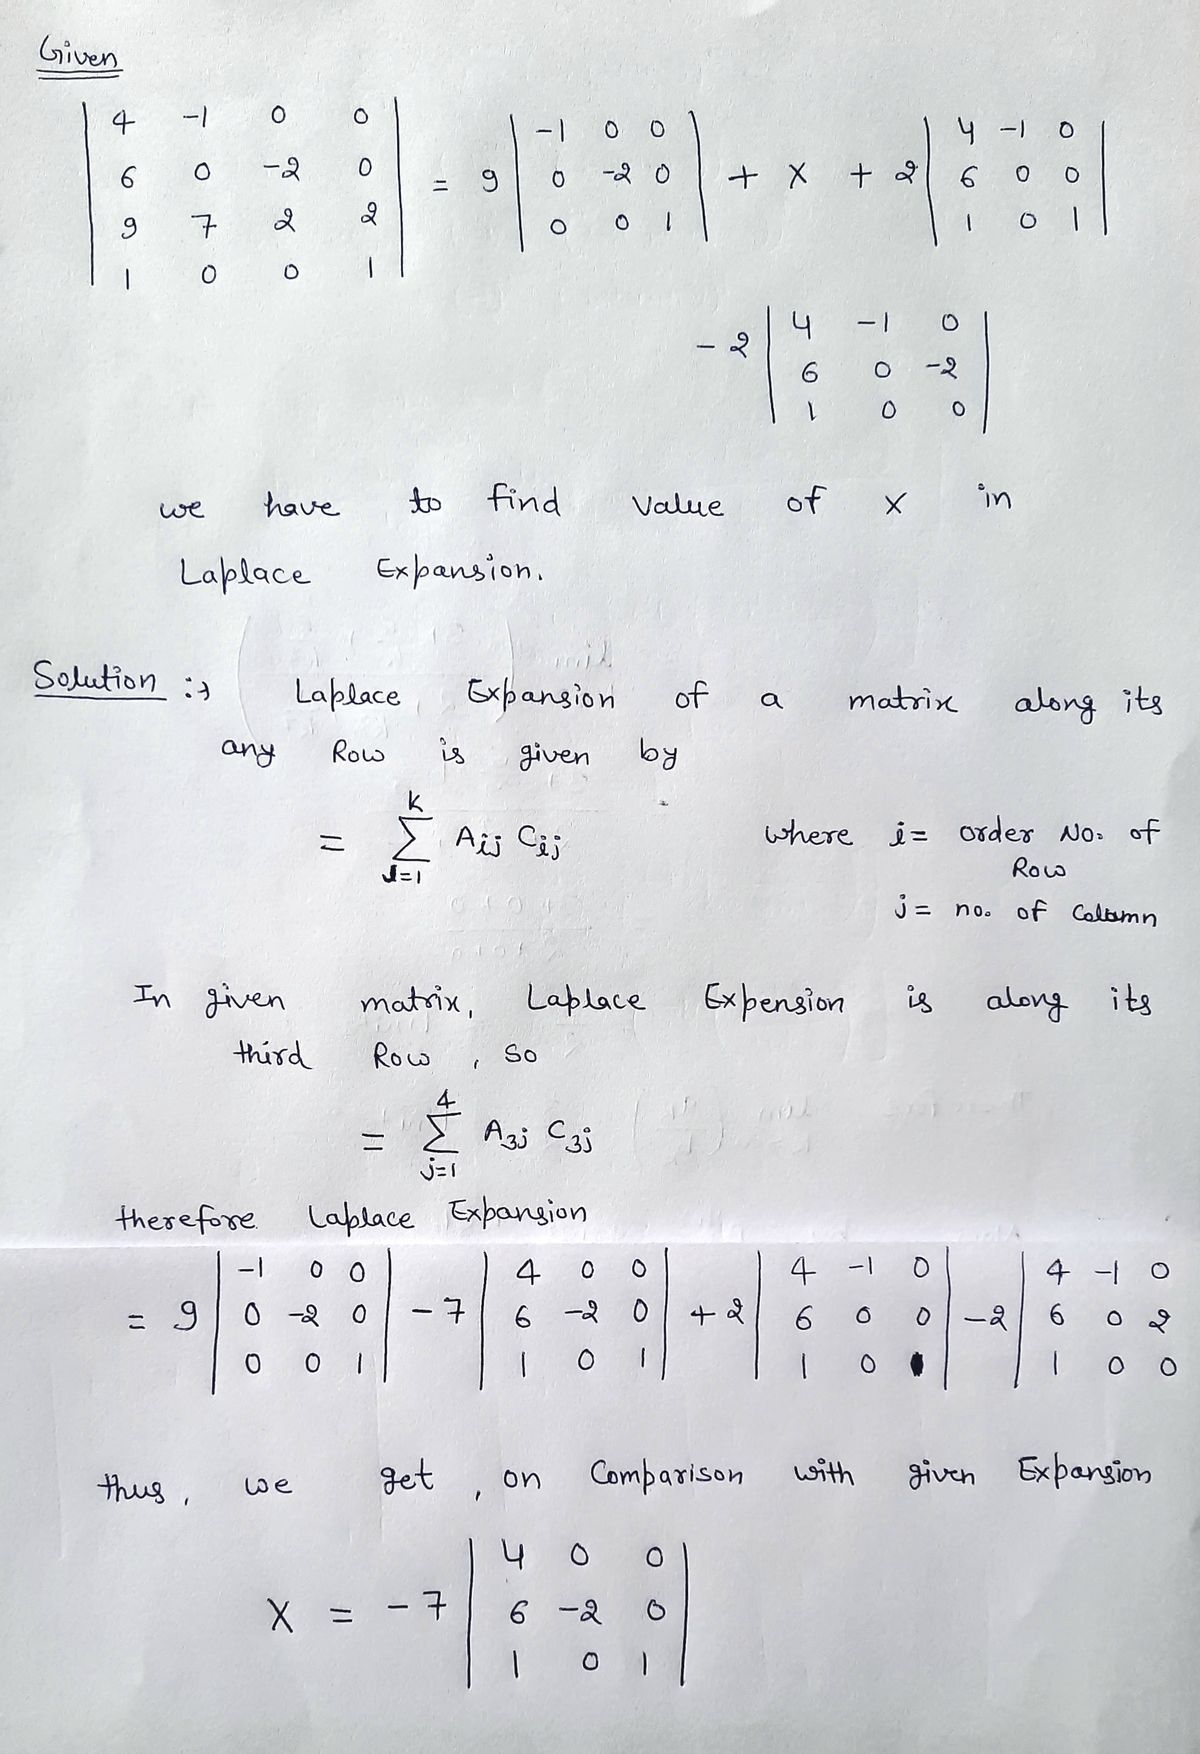 Given
| 4 -1 0 0 | = 9 | -1 0 0 | + X + 2 | 4 -1 0 |
| 6 0 -2 0 | | 0 -2 0 | | 6 0 0 |
| 9 7 2 2 | | 0 0 1 | | 1 0 1 |
| 1 0 0 1 |
- 2 | 4 -1 0 |
| 6 0 -2 |
| 1 0 0 |
we have to find value of X in
Laplace Expansion.
Solution :→ Laplace Expansion of a matrix along its
any Row is given by
= K Σ J=1 Aij Cij where i = order No. of
Row
j = no. of Column
In given matrix, Laplace Expension is along its
third Row, so
= 4 Σ j=1 A3j C3j
therefore Laplace Expansion
= 9 | -1 0 0 | - 7 | 4 0 0 | + 2 | 4 -1 0 | - 2 | 4 -1 0 |
| 0 -2 0 | | 6 -2 0 | | 6 0 0 | | 6 0 2 |
| 0 0 1 | | 1 0 1 | | 1 0 | | 1 0 0 |
thus, we get, on Comparison with given Expansion
X = - 7 | 4 0 0 |
| 6 -2 0 |
| 1 0 1 |